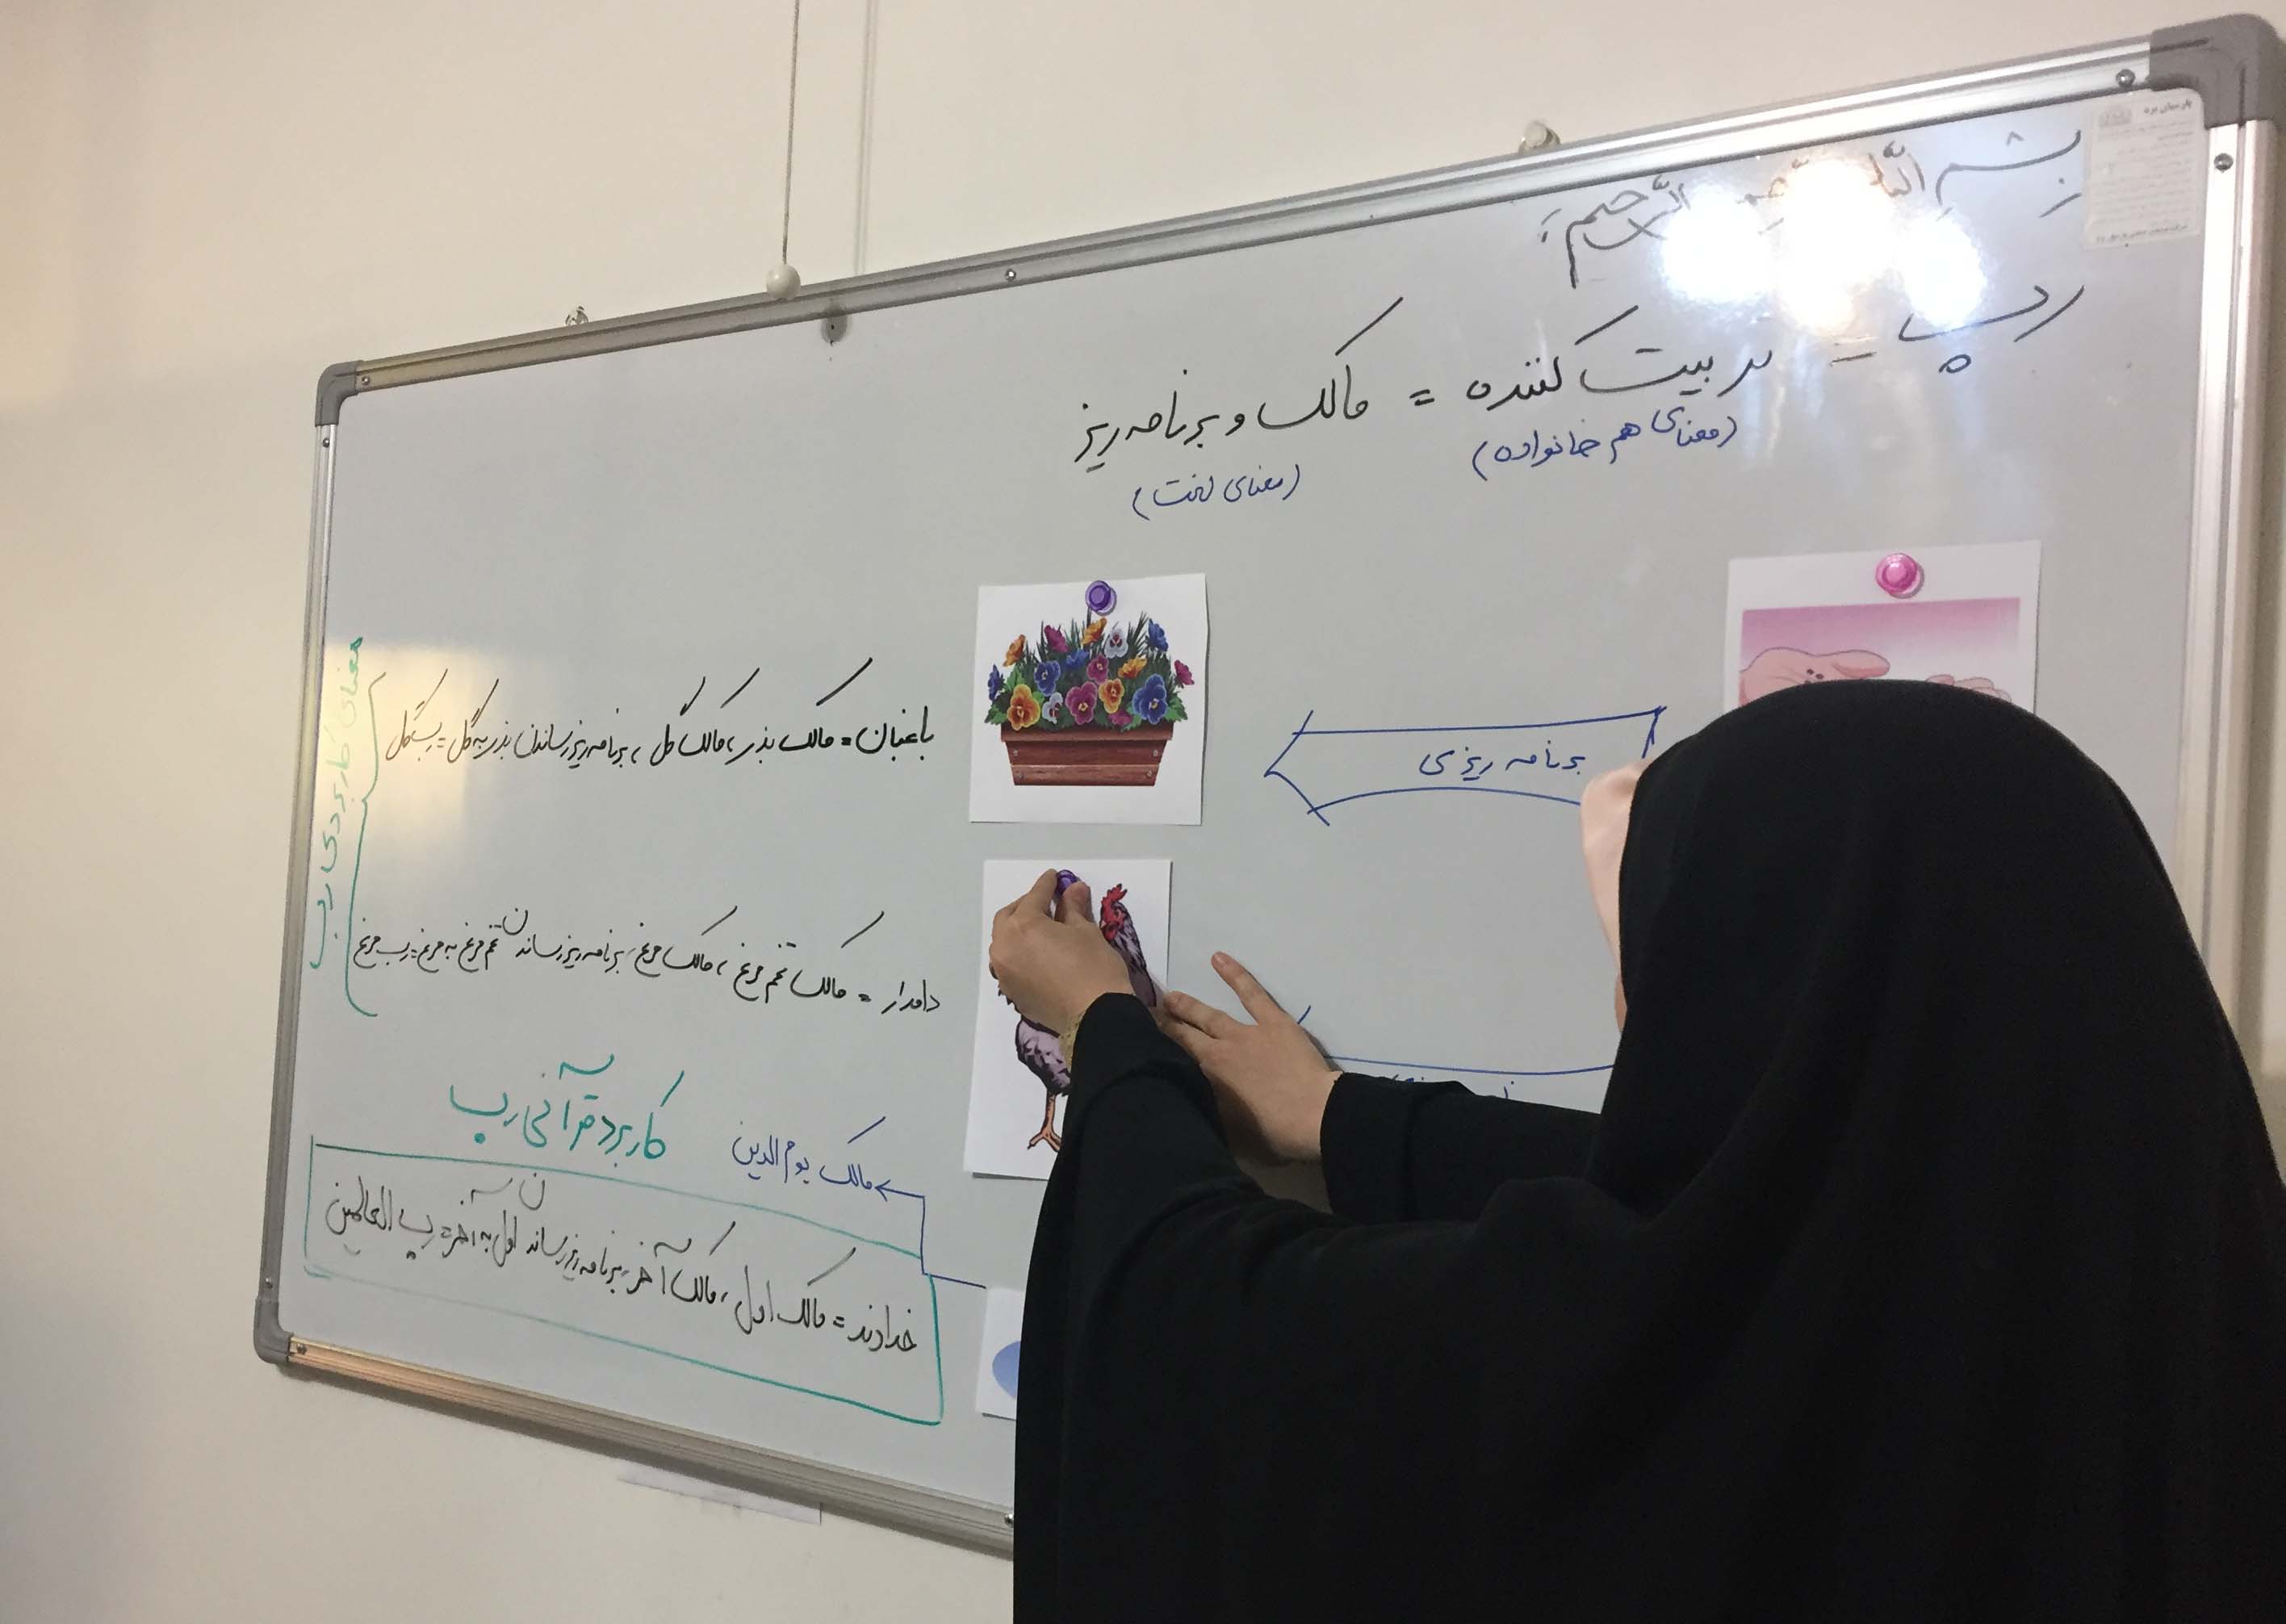 بِسْمِ اللّه الرَّحمن الرَّحیم
رب = تربیت کننده = مالک و برنامه ریز
(معنای هم خانواده)
(معنای لغت)
برنامه ریزی
باغبان = مالک بذر، مالک گل، برنامه ریز رساندن بذر به گل = رب گل
دامدار = مالک تخم مرغ، مالک مرغ، برنامه ریز رساندن تخم مرغ به مرغ = رب مرغ
معنای کاربردی رب
کاربرد قرآنی رب
مالک یوم الدین
خداوند = مالک اول، مالک آخر، برنامه ریز رساندن اول به آخر = رب العالمین